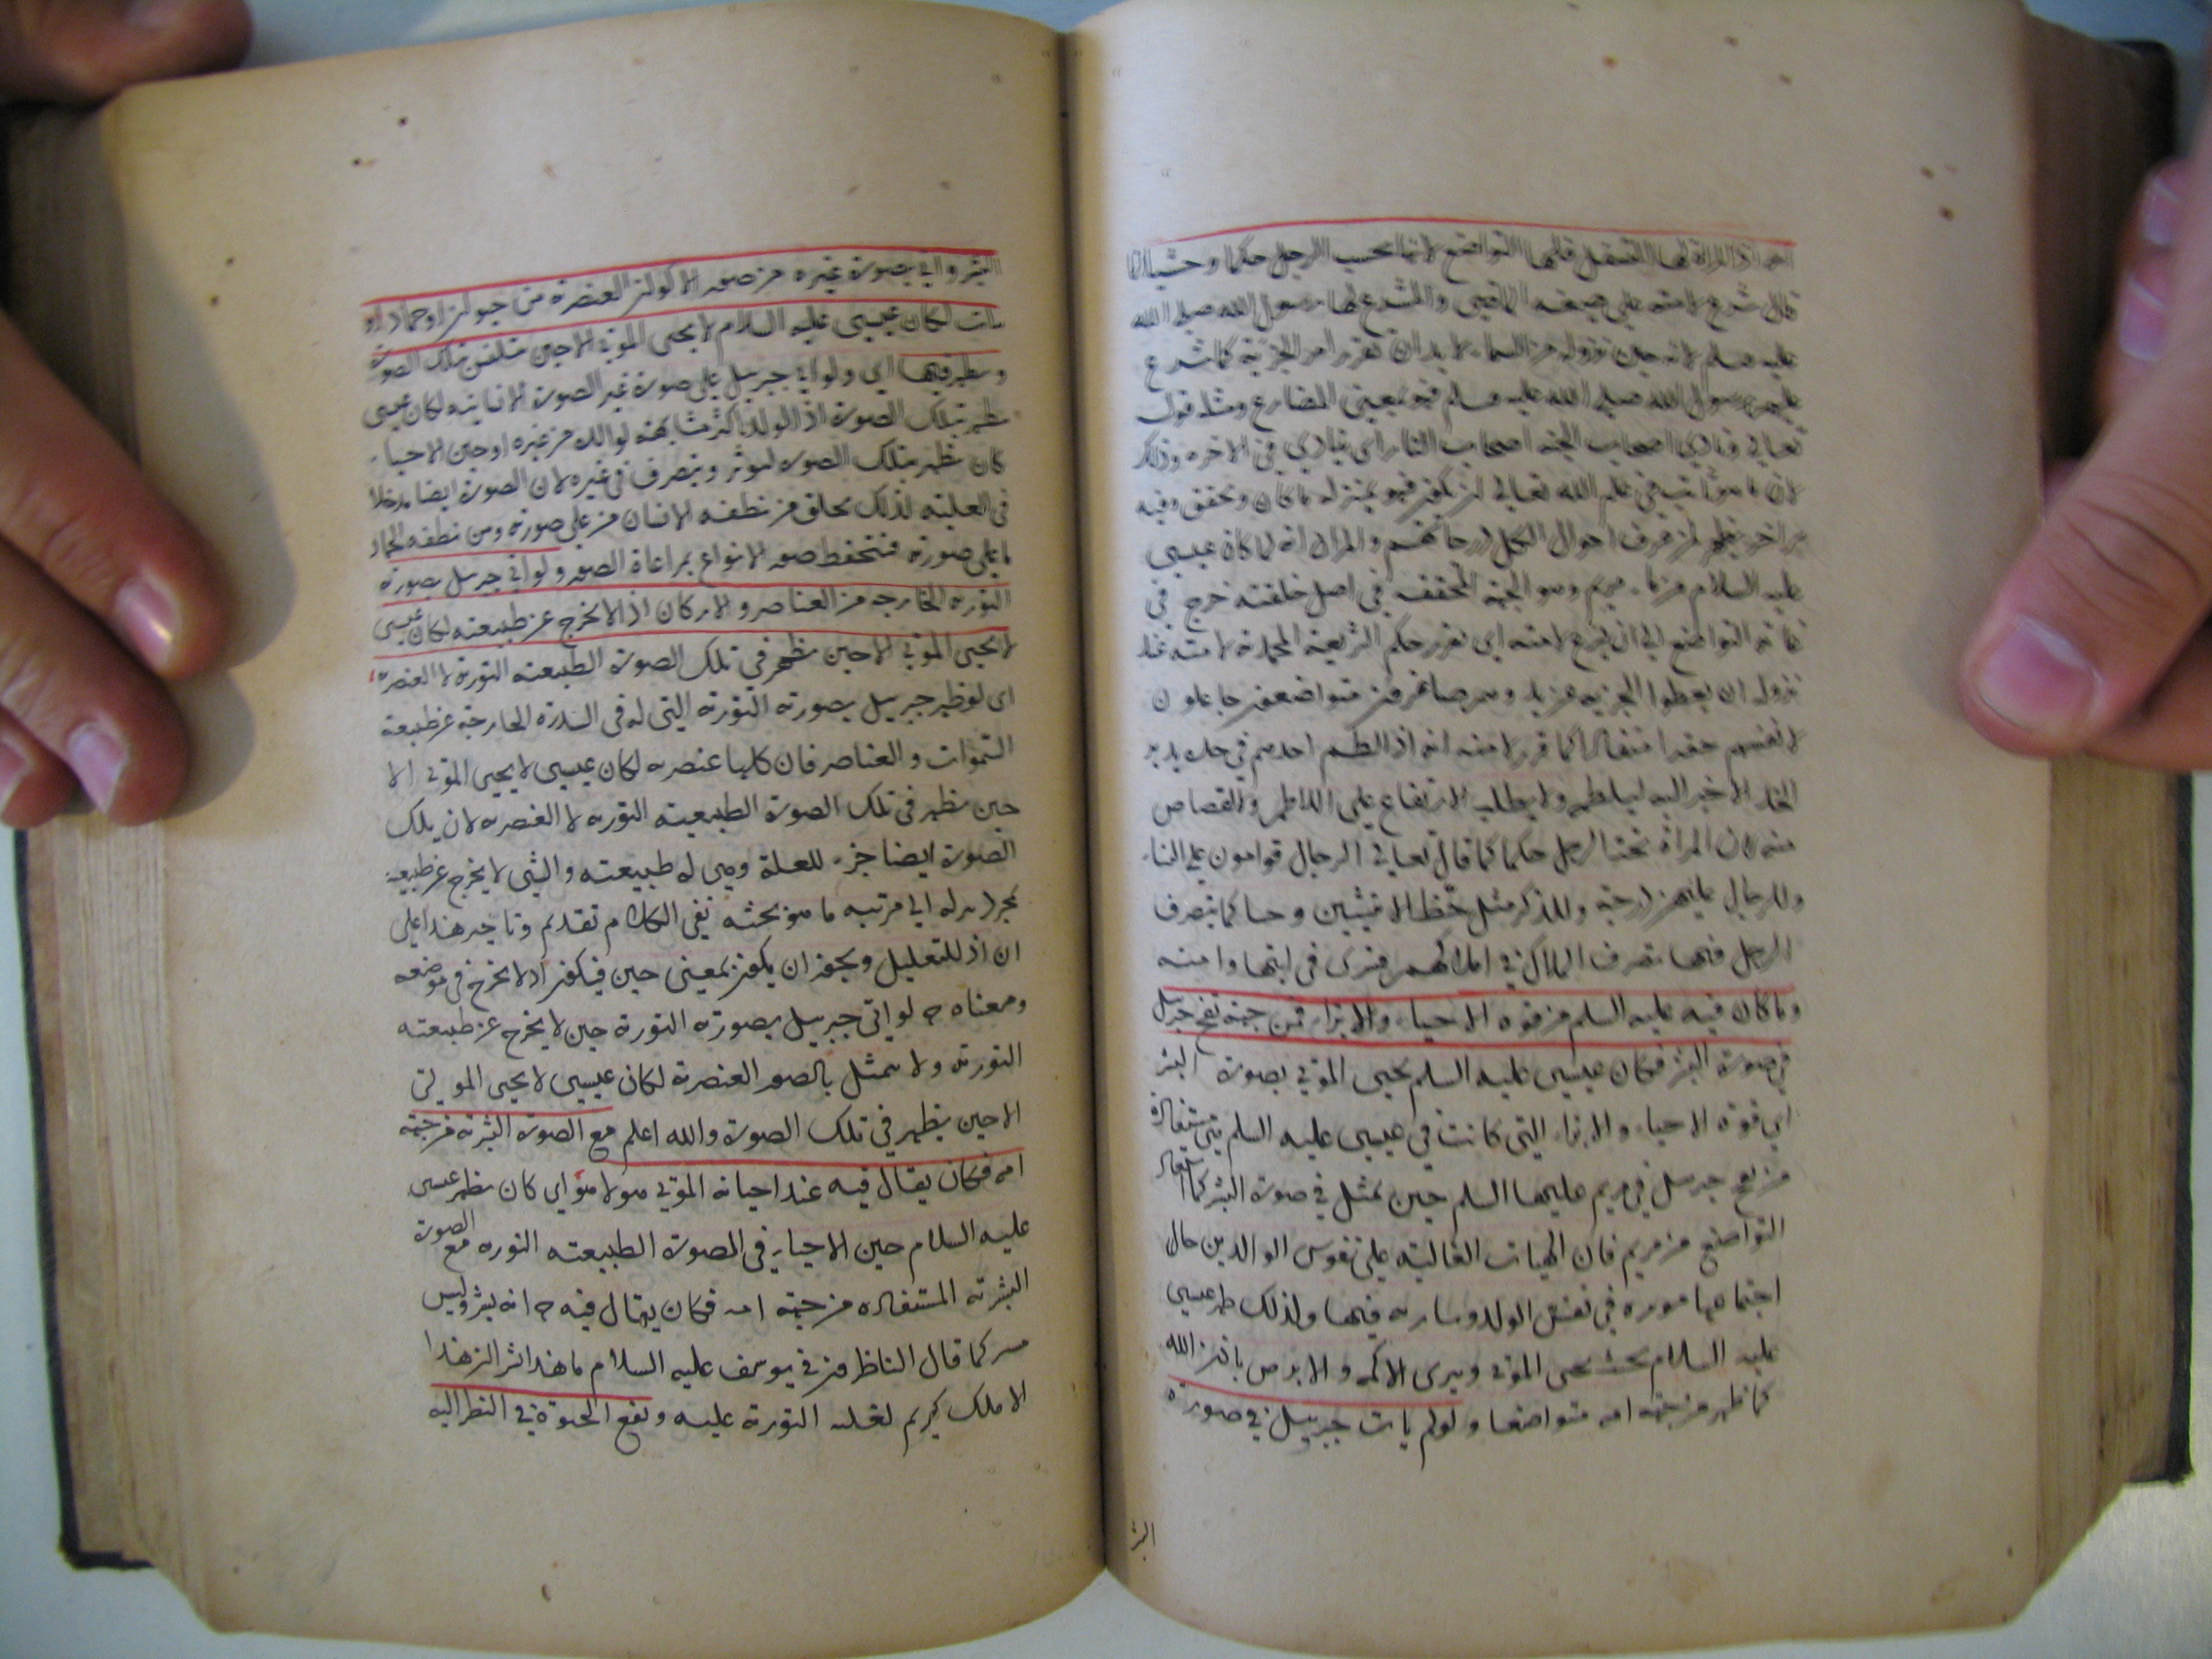 اذ المراة لها السفل فلها التواضع لانها تحت الرجل حكما وحسا انما
قال شرع لامته على صيغه الماضى والمشرع لها رسول الله صلى الله
عليه وسلم لانه حين نزوله من السماء لا بد ان يقرر امر الجزية كما شرع
عليهم رسول الله صلى الله عليه وسلم فهو بمعنى المضارع ومثله قوله
تعالى ونادى اصحاب الجنه اصحاب النار اى ينادى فى الاخره وذلك
لان ما هو ثابت فى علم الله تعالى ان يكون فهو بمنزله ما كان وتحقق وفيه
سر اخر يظهر لمن عرف احوال الكمل ودرجاتهم والمراد انه لما كان عيسى
عليه السلام من ماء مريم وهو الجهة المحقق فى اصل خلقته خرج فى
غاية التواضع الى ان شرع لامته اى يقرر حكم الشريعة المحمدية لامته عند
نزوله ان يعطوا الجزيه عن يد وهم صاغرون متواضعون جاعلون
لانفسهم حقدا منقادا كما قرر لامته انه اذا لطم احدهم فى خده يدير
الخد الاخر اليه ليلطمه ولا يطلب الارتفاع على اللاطم والقصاص
منه لان المراة تحت الرجل حكما كما قال تعالى الرجال قوامون على النساء
وللرجال عليهن درجة وللذكر مثل حظ الانثيين وحسا كما يتصرف
الرجل فيها تصرف الملاك فى املاكهم فسرى فى ابنها وامته
وما كان فيه عليه السلم من قوه الاحياء والابراء فمن جهة نفخ جبريل
فى صورة البشر فكان عيسى عليه السلم يحيى الموتى بصورة البشر
اى قوة الاحياء والابراء التى كانت فى عيسى عليه السلم هى مستفادة
من نفخ جبريل فى مريم عليهما السلم حين تمثل فى صورة البشر كما استفاد
التواضع من مريم فان الهيات الغالبة على نفوس الوالدين حال
اجتماعهما موثرة فى نفس الولد وسارية فيها ولذلك ظهر عيسى
عليه السلام بحيث يحيى الموتى ويبرى الاكمه والابرص باذن الله
كما ظهر من جهة امه متواضعا ولو لم يات جبريل فى صورة
البشر
البشر واتى بصورة غيره من صور الاكوان العنصرية من حيوان او جماد او
نبات لكان عيسى عليه السلام لا يحيى الموتى الا حين متلبس بتلك الصورة
ويظهر فيها اى ولو اتى جبريل على صورة غير الصورة الانسانيه لكان عيسى
يظهر بتلك الصورة اذ الولد اكثر مشابهته لوالده من غيره او حين الاحياء
كان يظهر بتلك الصوره ليوثر ويتصرف فى غيره لان الصورة ايضا مدخلا
فى العليه لذلك يخلق من نطفه الانسان من على صورته ومن نطفه الحمار
ما على صورته فتتحفظ صور الانواع بمراعاة الصور ولو اتى جبريل بصورته
النوريه الخارجه من العناصر والاركان اذ لا يخرج عن طبيعته لكان عيسى
لا يحيى الموتى الا حين يظهر فى تلك الصورة الطبيعيه النوريه لا العنصريه
اى لو ظهر جبريل بصورته النورية التى له فى السدره الخارجه عن طبيعة
السموات والعناصر فان كلها عنصريه لكان عيسى لا يحيى الموتى الا
حين يظهر فى تلك الصورة الطبيعيه النوريه لا العنصريه لان تلك
الصورة ايضا جزء للعلة وهى له طبيعته والشى لا يخرج عن طبيعته
بمجرد تنزله الى مرتبه ما هو تحته ففى الكلام تقديم وتاخير هذا على
ان اذ للتعليل ويجوز ان يكون بمعنى حين فيكون اذ لا يخرج فى موضعه
ومعناه ح لو اتى جبريل بصورته النورية حين لا يخرج عن طبيعته
النورية ولا يتمثل بالصور العنصرية لكان عيسى لا يحيى الموتى
الا حين يظهر فى تلك الصورة والله اعلم مع الصورة البشرية من جهة
امه فكان يقال فيه عند احيائه الموتى هو لا هو اى كان يظهر عيسى
عليه السلام حين الاحياء فى الصورة الطبيعيه النوريه مع الصورة
البشرية المستفاده من جهة امه فكان يقال فيه ح انه بشر وليس
ببشر كما قال الناظرون فى يوسف عليه السلام ما هذا بشرا ان هذا
الا ملك كريم لغلبة النورية عليه وتقع الحيرة فى النظر اليه